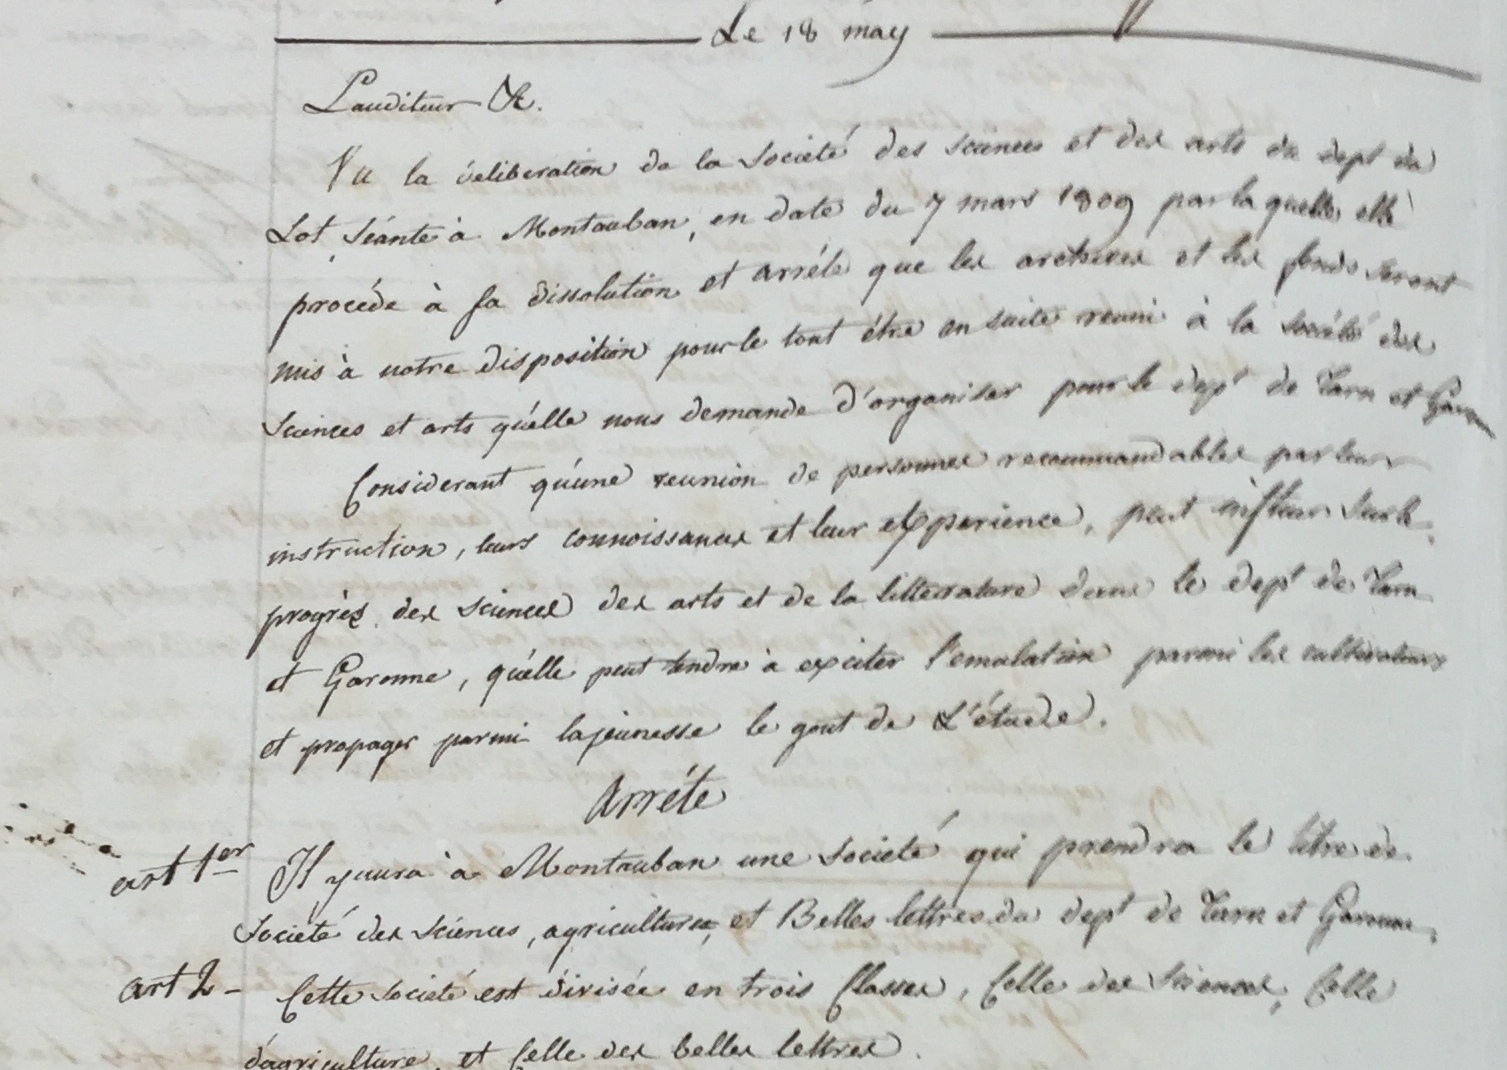 Le 18 may
L'auditeur &c.
Vu la déliberation de la Societé des sciences et des arts du dept du
Lot séante à Montauban, en date du 7 mars 1809 par la quelle elle
procéde à sa dissolution et arréte que les archives et les fonds seront
mis à notre disposition pour le tout étre en suite reuni à la société des
sciences et arts qu'elle nous demande d'organiser pour le dept de Tarn et Garonne
Considerant qu'une reunion de personnes recommandables par leur
instruction, leurs connoissances et leur experience, peut influer sur le
progrès des sciences des arts et de la litterature dans le dept de Tarn
et Garonne, qu'elle peut tendre à exciter l'emulation parmi les cultivateurs
et propager parmi la jeunesse le gout de L'étude.
Arréte
art 1er Il y aura à Montauban une societé qui prendra le titre de
Societé des sciences, agriculture, et Belles lettres du dept de Tarn et Garonne,
art 2 - Cette societé est divisée en trois Classes, Celle des Sciences, Celle
d'agriculture, et Celle des belles lettres.